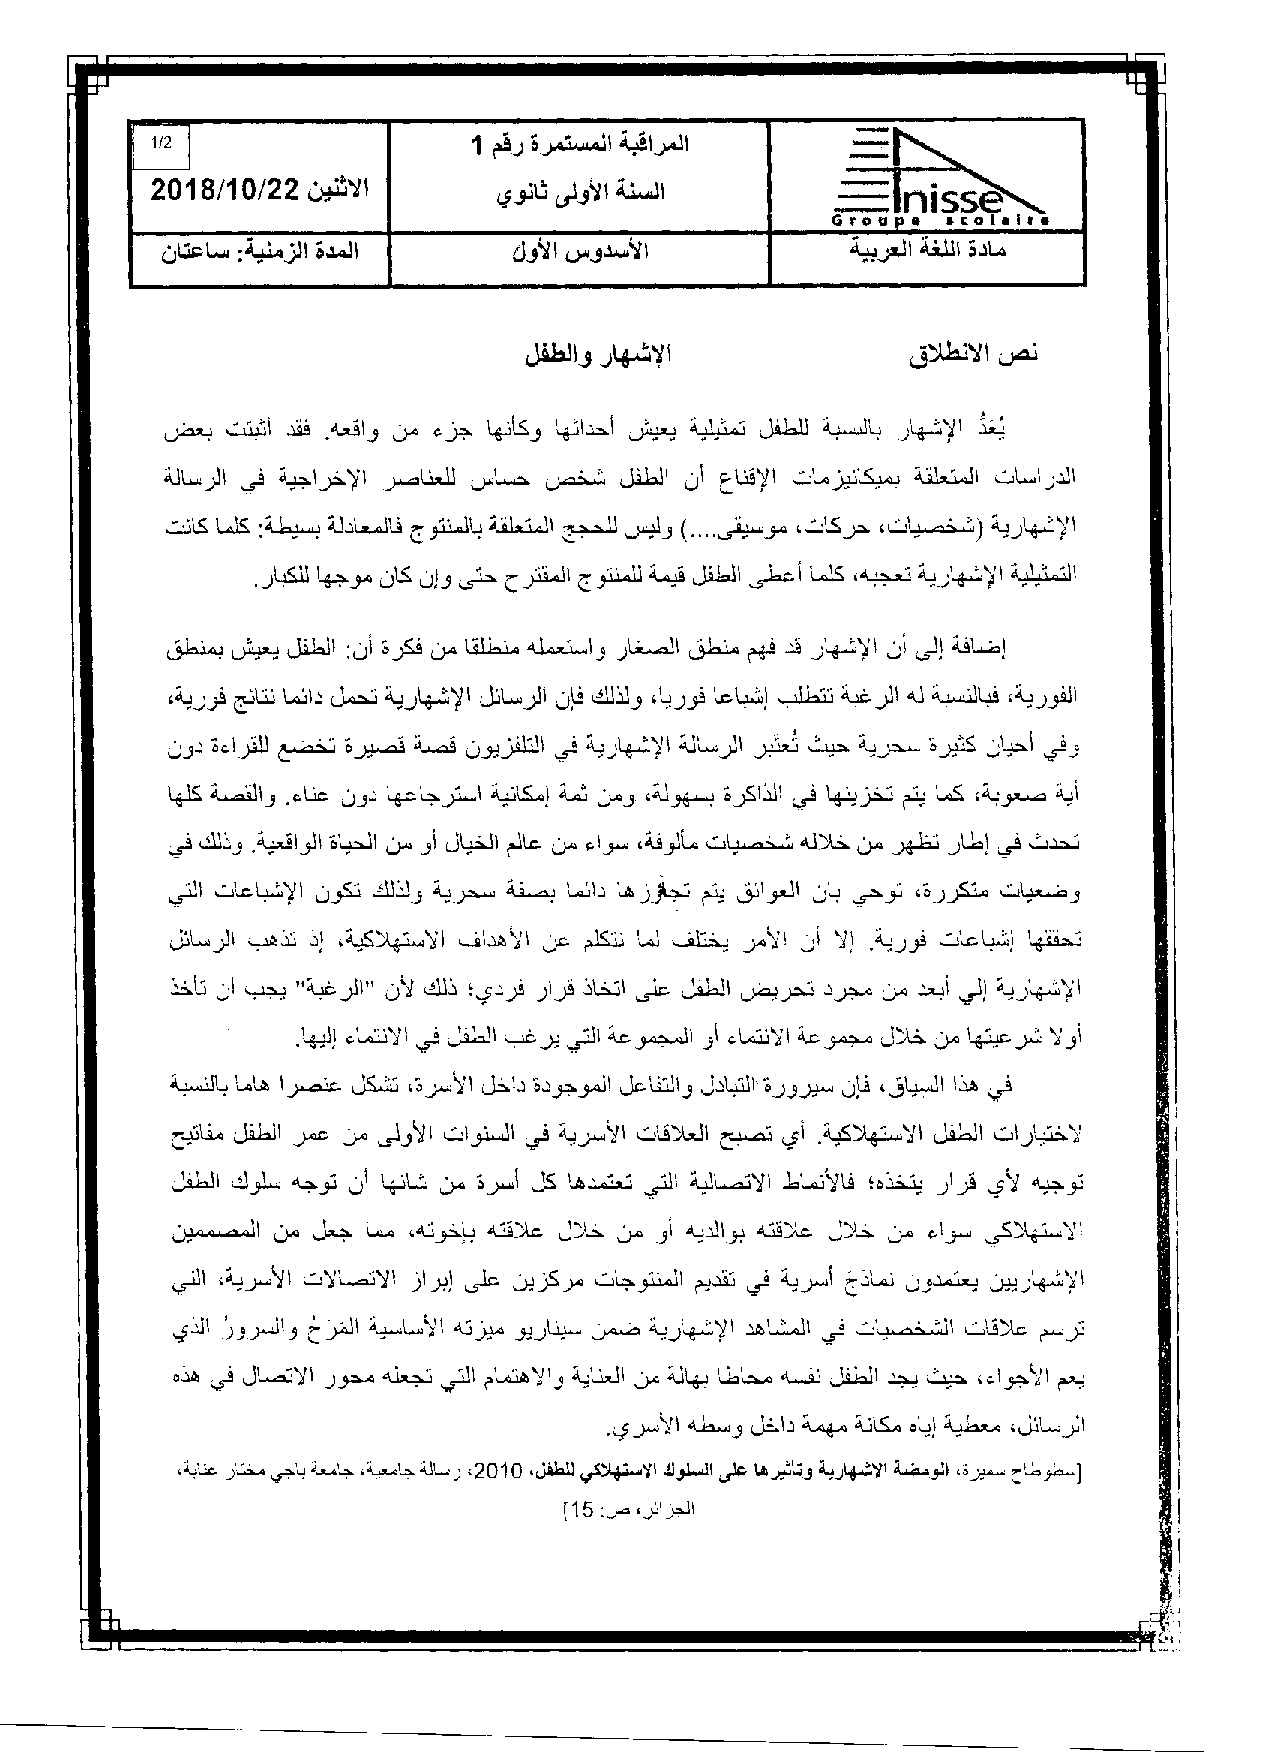 1/2
المراقبة المستمرة رقم 1
الاثنين 2018/10/22
السنة الأولى ثانوي
Anisse
Groupe scolaire
مادة اللغة العربية
الأسدوس الأول
المدة الزمنية: ساعتان
نص الانطلاق
الإشهار والطفل
يُعَدُّ الإشهار بالنسبة للطفل تمثيلية يعيش أحداثها وكأنها جزء من واقعه. فقد أثبتت بعض
الدراسات المتعلقة بميكانيزمات الإقناع أن الطفل شخص حساس للعناصر الإخراجية في الرسالة
الإشهارية (شخصيات، حركات، موسيقى....) وليس للحجج المتعلقة بالمنتوج فالمعادلة بسيطة: كلما كانت
التمثيلية الإشهارية تعجبه، كلما أعطى الطفل قيمة للمنتوج المقترح حتى وإن كان موجها للكبار.
إضافة إلى أن الإشهار قد فهم منطق الصغار واستعمله منطلقا من فكرة أن: الطفل يعيش بمنطق
الفورية، فبالنسبة له الرغبة تتطلب إشباعا فوريا، ولذلك فإن الرسائل الإشهارية تحمل دائما نتائج فورية،
وفي أحيان كثيرة سحرية حيث تُعتَبر الرسالة الإشهارية في التلفزيون قصة قصيرة تخضع للقراءة دون
أية صعوبة، كما يتم تخزينها في الذاكرة بسهولة، ومن ثمة إمكانية استرجاعها دون عناء. والقصة كلها
تحدث في إطار تظهر من خلاله شخصيات مألوفة، سواء من عالم الخيال أو من الحياة الواقعية. وذلك في
وضعيات متكررة، توحي بان العوائق يتم تجاوزها دائما بصفة سحرية ولذلك تكون الإشباعات التي
تحققها إشباعات فورية. إلا أن الأمر يختلف لما نتكلم عن الأهداف الاستهلاكية، إذ تذهب الرسائل
الإشهارية إلي أبعد من مجرد تحريض الطفل على اتخاذ قرار فردي؛ ذلك لأن "الرغبة" يجب ان تأخذ
أولا شرعيتها من خلال مجموعة الانتماء أو المجموعة التي يرغب الطفل في الانتماء إليها.
في هذا السياق، فإن سيرورة التبادل والتفاعل الموجودة داخل الأسرة، تشكل عنصرا هاما بالنسبة
لاختيارات الطفل الاستهلاكية. أي تصبح العلاقات الأسرية في السنوات الأولى من عمر الطفل مفاتيح
توجيه لأي قرار يتخذه؛ فالأنماط الاتصالية التي تعتمدها كل أسرة من شانها أن توجه سلوك الطفل
الاستهلاكي سواء من خلال علاقته بوالديه أو من خلال علاقته بإخوته، مما جعل من المصممين
الإشهاريين يعتمدون نماذجَ أسرية في تقديم المنتوجات مركزين على إبراز الاتصالات الأسرية، التي
ترسم علاقات الشخصيات في المشاهد الإشهارية ضمن سيناريو ميزته الأساسية المَرَحُ والسرورُ الذي
يعم الأجواء، حيث يجد الطفل نفسه محاطا بهالة من العناية والاهتمام التي تجعله محور الاتصال في هذه
الرسائل، معطية إياه مكانة مهمة داخل وسطه الأسري.
[سطوطاح سميرة، الومضة الاشهارية وتأثيرها على السلوك الاستهلاكي للطفل، 2010، رسالة جامعية، جامعة باجي مختار عنابة،
الجزائر، ص: 15]